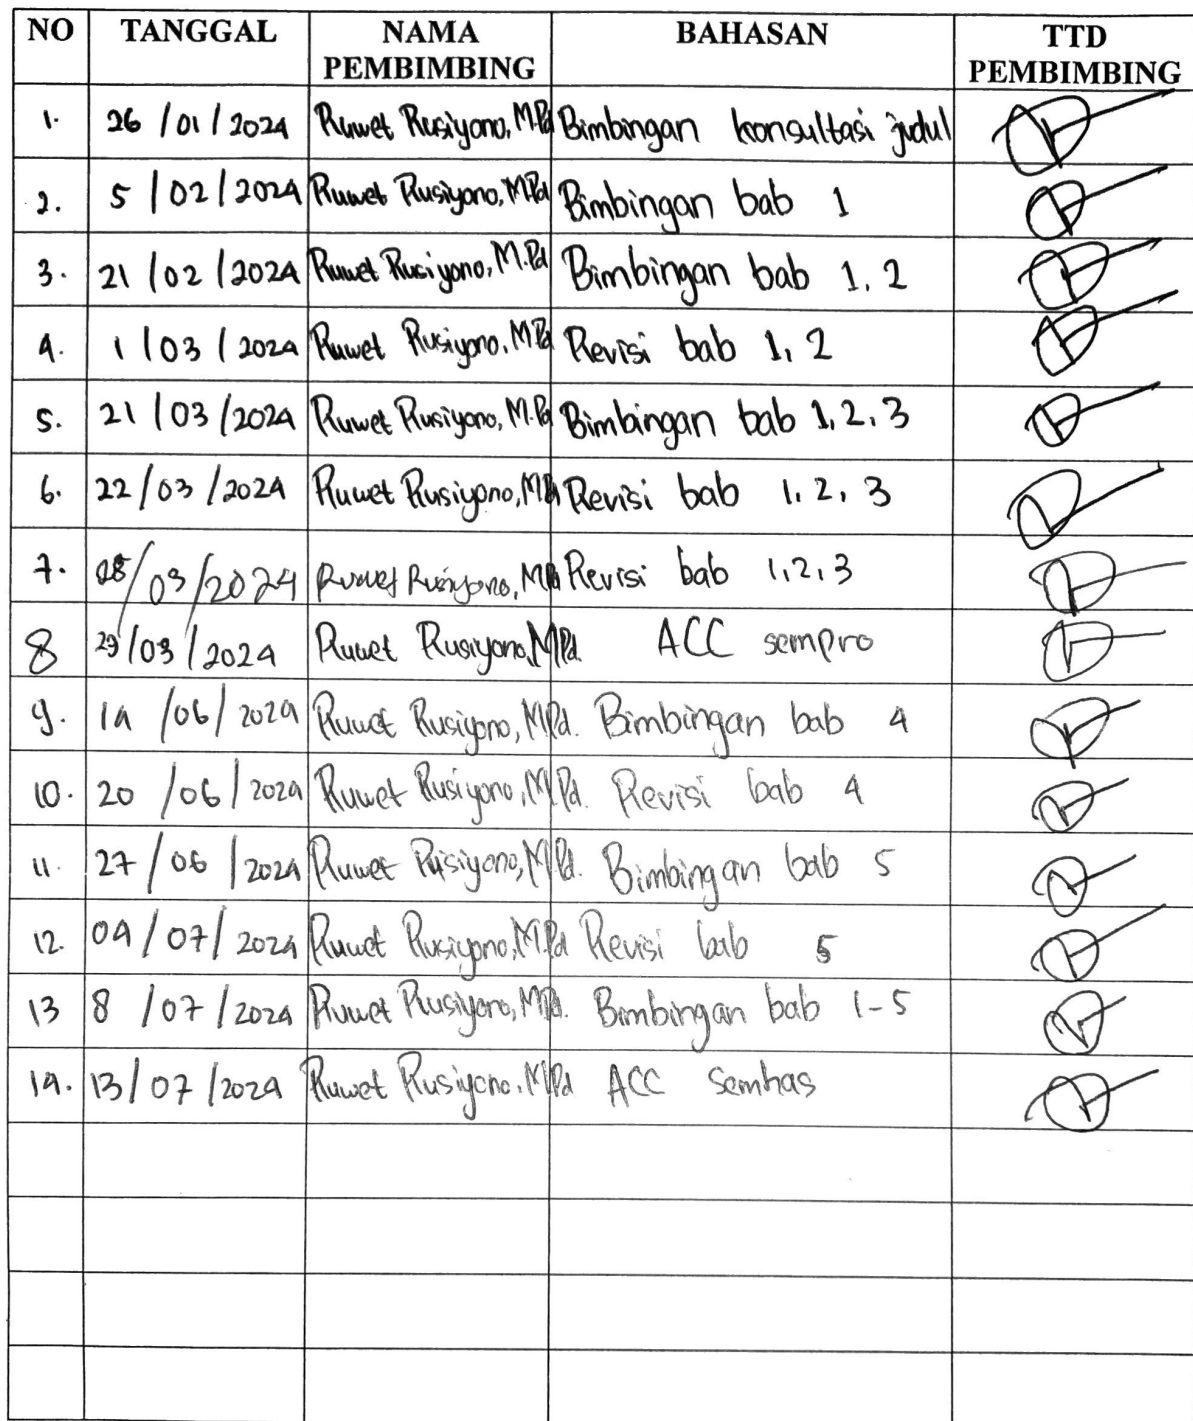 NO TANGGAL NAMA PEMBIMBING BAHASAN TTD PEMBIMBING
1. 26/01/2024 Ruwet Rusiyono, M.Pd Bimbingan konsultasi judul
2. 5/02/2024 Ruwet Rusiyono, M.Pd Bimbingan bab 1
3. 21/02/2024 Ruwet Rusiyono, M.Pd Bimbingan bab 1, 2
4. 1/03/2024 Ruwet Rusiyono, M.Pd Revisi bab 1, 2
5. 21/03/2024 Ruwet Rusiyono, M.Pd Bimbingan bab 1, 2, 3
6. 22/03/2024 Ruwet Rusiyono, M.Pd Revisi bab 1, 2, 3
7. 28/03/2024 Ruwet Rusiyono, M.Pd Revisi bab 1, 2, 3
8 29/03/2024 Ruwet Rusiyono, M.Pd. ACC sempro
9. 14/06/2024 Ruwet Rusiyono, M.Pd. Bimbingan bab 4
10. 20/06/2024 Ruwet Rusiyono, M.Pd. Revisi bab 4
11. 27/06/2024 Ruwet Rusiyono, M.Pd. Bimbingan bab 5
12. 04/07/2024 Ruwet Rusiyono, M.Pd Revisi bab 5
13 8/07/2024 Ruwet Rusiyono, M.Pd. Bimbingan bab 1-5
14. 13/07/2024 Ruwet Rusiyono, M.Pd ACC Semhas